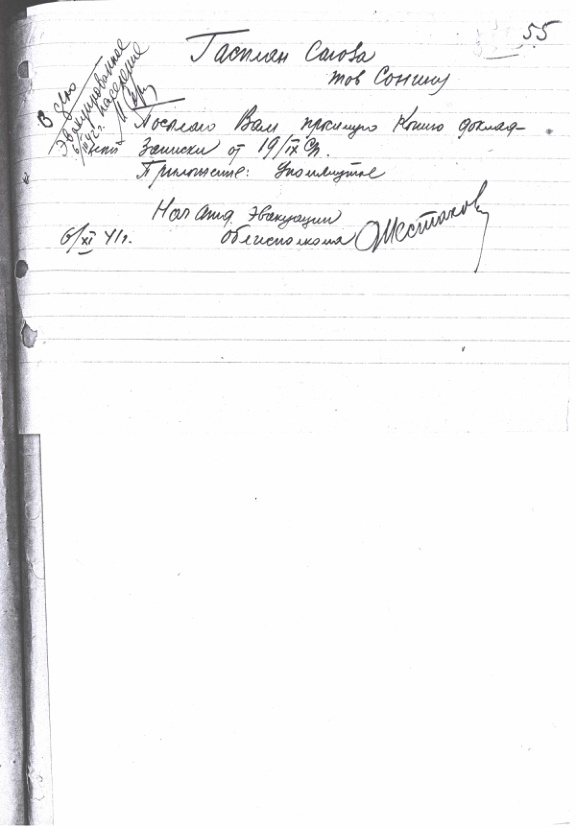 55
Госплан Союза
тов
В дело
Эвакуированное
население
Посылаю Вам просимую Копию доклад-
ной Записки от 19/IX
Приложение: Упомянутое
Нач отд. Эвакуации
6/XI 41г. Облисполкома Шестаков